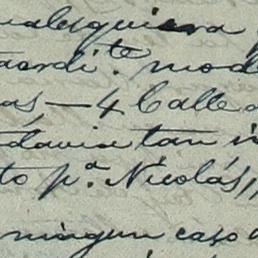 ualesquiera
tardi.te mod
ás — 4 Calle
davia tan i
to p.a Nicolás,
ningun caso